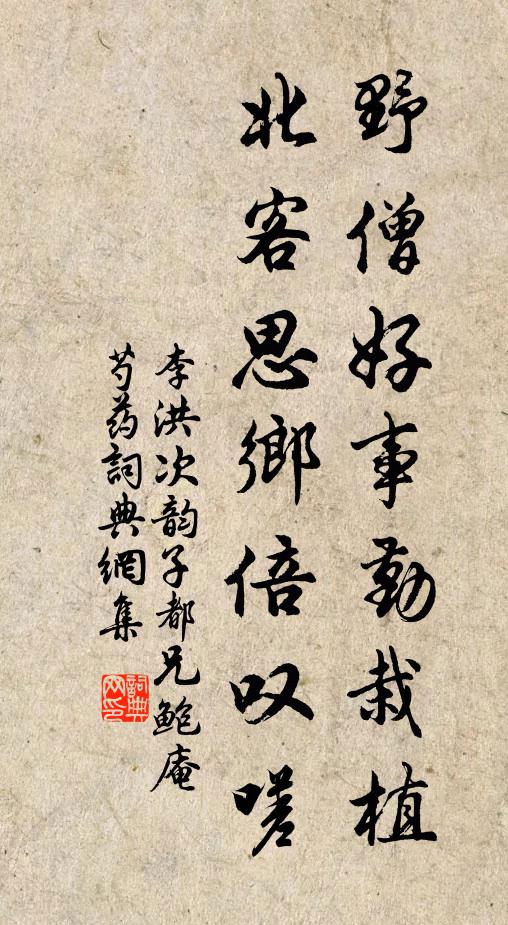 野僧好事勤栽植
北客思鄉倍叹嗟
李洪次韵子都兄鲍庵
芍药詞典網集
詞典網印